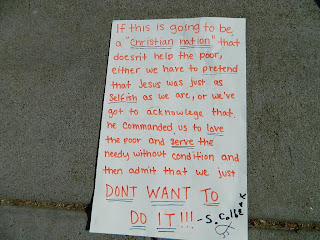 If this is going to be
a "christian nation" that
doesn't help the poor,
either we have to pretend
that Jesus was just as
selfish as we are, or we've
got to acknowlege that
he commanded us to love
the poor and serve the
needy without condition and
then admit that we just
DON'T WANT TO
DO IT!!! -S.